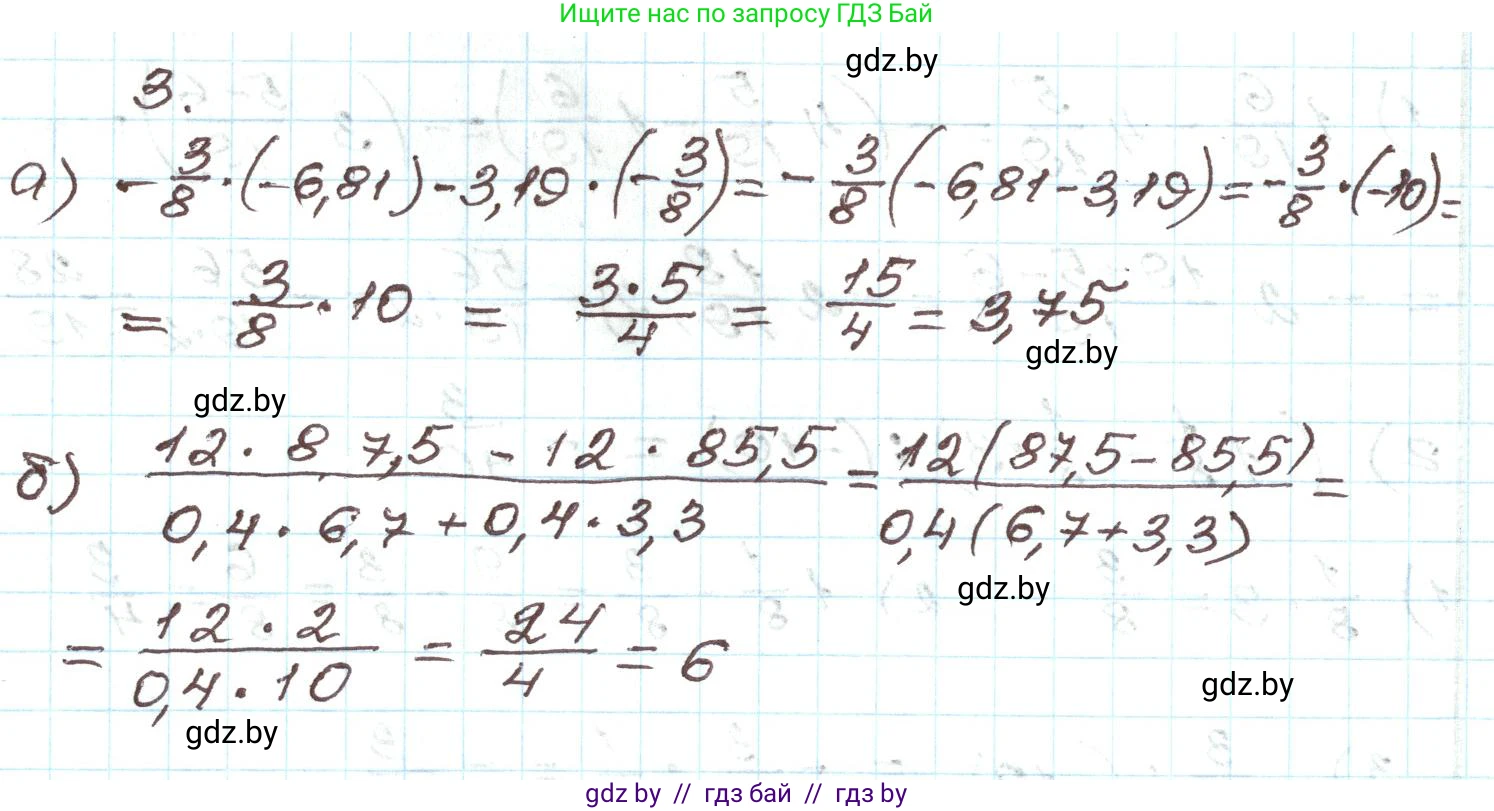 Ищите нас по запросу ГДЗ Бай
gdz.by
3.
а) - 3/8 · (-6,81) - 3,19 · (-3/8) = - 3/8 (-6,81 - 3,19) = - 3/8 · (-10) =
= 3/8 · 10 = 3·5/4 = 15/4 = 3,75
gdz.by
gdz.by
б) 12 · 87,5 - 12 · 85,5 / 0,4 · 6,7 + 0,4 · 3,3 = 12(87,5 - 85,5) / 0,4(6,7 + 3,3) =
gdz.by
= 12 · 2 / 0,4 · 10 = 24/4 = 6
gdz.by
gdz.by
gdz by // гдз бай // гдз by